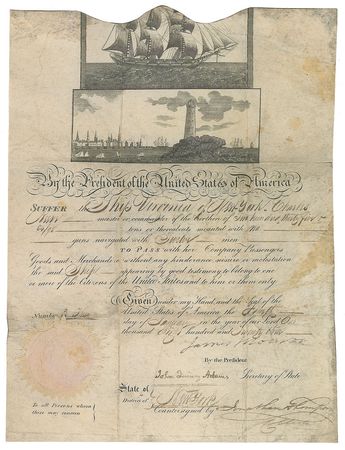 By the President of the United States of America
SUFFER the Ship Virginia of New York Charles
master or commander of the burthen of
tons or thereabouts mounted with no
guns navigated with Twelve men
TO PASS with her Company Passengers
Goods and Merchandize without any hinderance seisure or molestation
the said Ship appearing by good testimony to belong to one
or more of the Citizens of the United States and to him or them only
Given under my Hand and the Seal of the
United States of America the
day of in the year of our Lord One
thousand Eight hundred and Twenty
James Monroe
By the President
John Quincy Adams Secretary of State
Number
State of
District of New York
Countersigned by Jonathan Thompson
To all Persons whom
these may concern